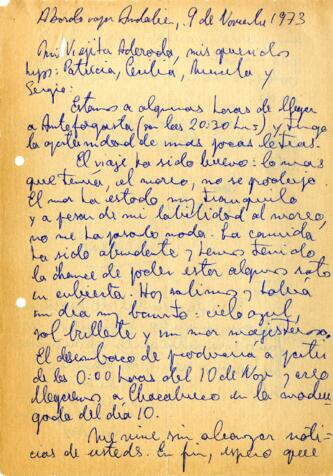 Abordo vapor Andalién, 9 de Noviembre 1973
Mi Viejita Adorada, mis queridos
hijos: Patricia, Cecilia, Marcela y
Sergio:
Estamos a algunas horas de llegar
a Antofagasta (son las 20:30 hrs) y tengo
la oportunidad de unas pocas letras.
El viaje ha sido bueno: lo mas
que temía, el mareo, no se produjo.
El mar ha estado muy tranquilo
y a pesar de mi labilidad al mareo,
no me ha pasado nada. La comida
ha sido abundante y hemos tenido
la chance de poder estar algunos ratos
en cubierta. Hoy salimos y había
un día muy bonito: cielo azul,
sol brillante y un mar majestuoso.
El desembarco se produciría a partir
de las 0:00 horas del 10 de Nov y creo
llegaremos a Chacabuco en la madru-
gada del día 10.
Me vine sin alcanzar noti-
cias de Ustedes. En fin, espero que